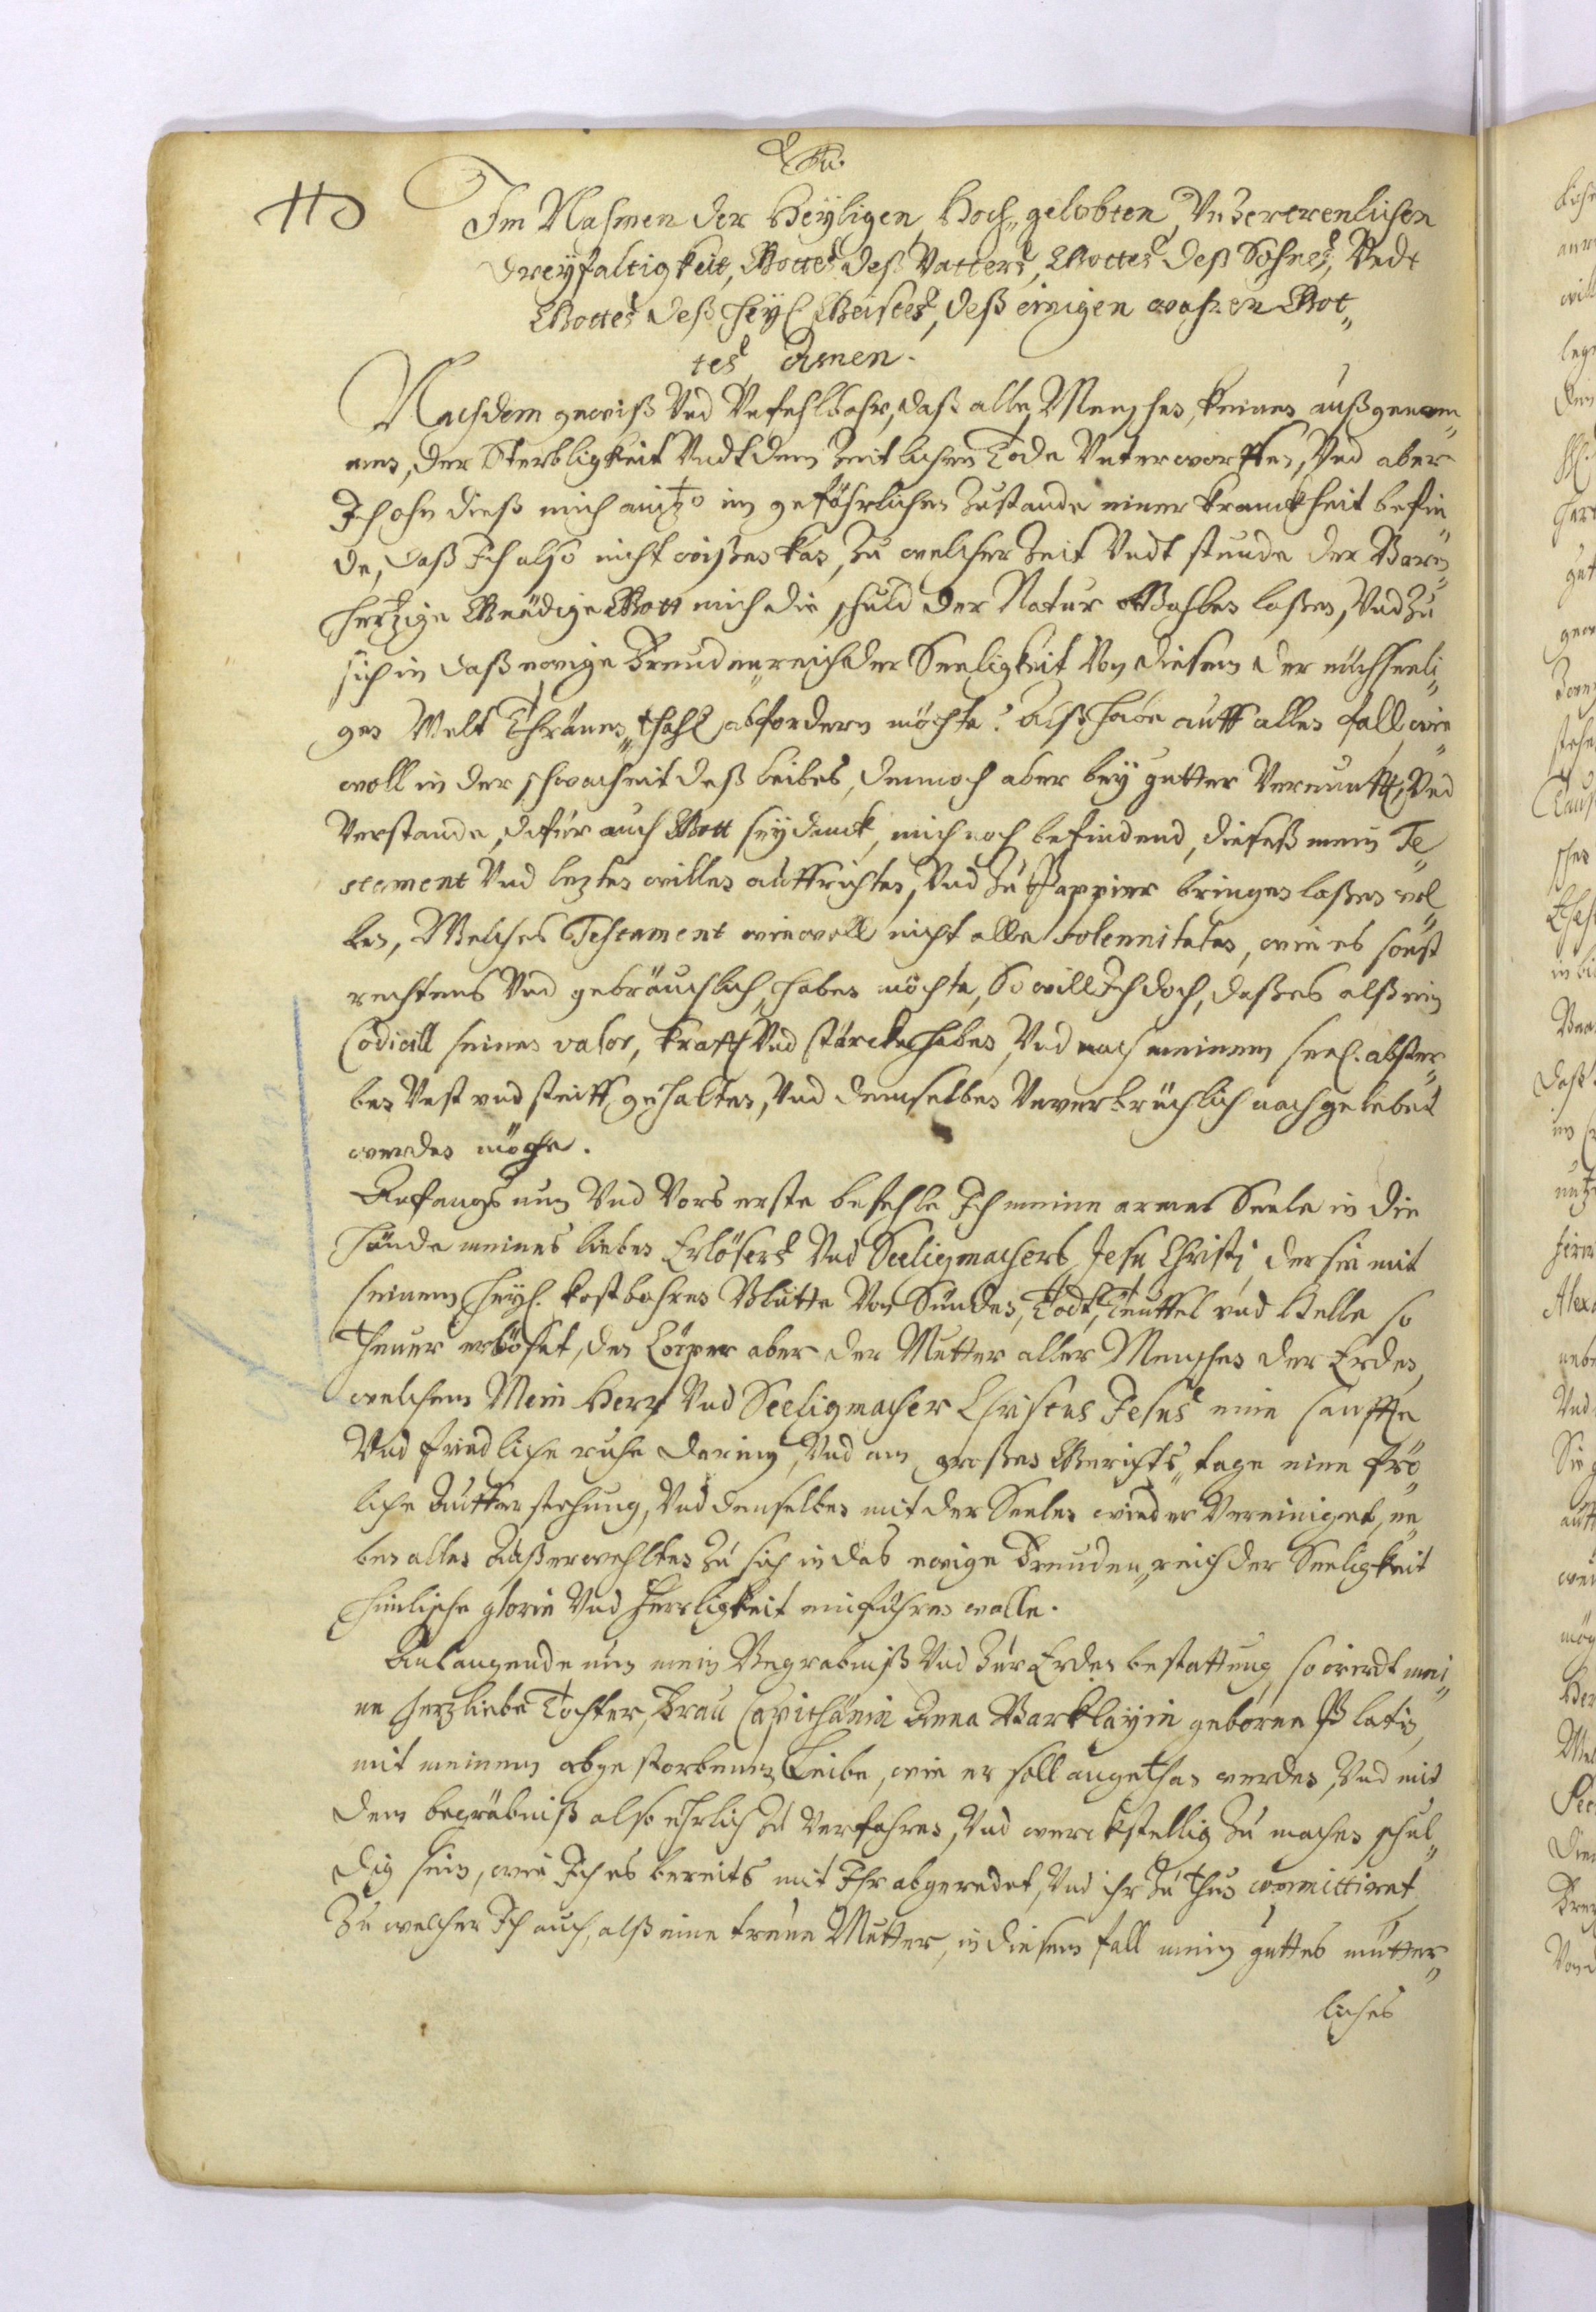 Im Nahmen der Heyligen, Hoch„gelobten, Unzertrenlichen
Dreyfaltigkeit, Gottes deß Vatters, Gottes deß Sohnes, Undt
Gottes deß Heyl. Geistes, deß einigen wahren Got„
tes Amen.
Nachdem gewiß Und Unfehlbahr, daß alle Menschen, keinen außgenom„
men, der Sterbligkeit Undt dem Zeitlichen Tode Unterworffen, Und aber
Ich ohn dieß mich anitzo im gefährlichen Zustande einer kranckheit befin„
de, daß Ich also nicht wißen kan, Zu welcher Zeit Undt stunde der Barm„
hertzige Gnädige Gott mich die schuld der Natur Bezahlen laßen, Und Zu
sich in daß ewige Freuden„reich der Seeligkeit Von diesem der mühseeli„
gen Welt Thränen„thahl abfordern möchte: Alß habe auff allen fall, wie„
woll in der schwacheit deß leibes, dennoch aber bey gutter Vernunfft, Und
Verstande, dafür auch Gott sey danck, mich noch befindend, dieseß mein Te„
stament Und lezten willen auffrichten, Und Zu Pappier bringen laßen wol„
len, Welches Testament wiewoll nicht alle solennitaten, wie es sonst
rechtens Und gebräuchlich, haben möchte, So will Ich doch, daß es alß ein
Codicill seinen valor, krafft Und stärcke haben, Und nach meinem seel. abster„
ben Vest und steiff gehalten, Und demselben Unverbrüchlich nachgelebet
werden möge.
Anfangs nun Und Vors erste befehle Ich meine arme Seele in die
hände meines lieben Erlösers Und Seeligmachers Jesu Christi, der sie mit
seinem Heyl. kostbahren Blutte Von Sünden, Todt, Teuffel und Helle so
theuer erlöset, den Cörper aber der Mutter aller Menschen der Erden,
welchem Mein Herr Und Seeligmacher Christus Jesus eine sanffte
Und friedliche ruhe darin, Und am großen Gerichts„tage eine frö„
liche Aufferstehung, Und denselben mit der Seelen wieder Vereiniget, ne„
ben allen Außerwehlten Zu sich in das ewige Freuden„reich der Seeligkeit
himlische glorie Und Herrligkeit einführen wolle.
Anlangende nun mein Begrabniß Und Zur Erden bestattung, so wirdt mei„
ne herzliebe Tochter, Frau Capithänin Anna Barklayin geborne Platin,
mit meinem abgestorbenen Leibe, wie er soll angethan werden, Und mit
dem begräbniß also ehrlich Zu Verfahren, Und werckstellig Zu machen schul„
dig sein, wie Ich es bereits mit Ihr abgeredet, Und ihr Zu thun committiret,
Zu welcher Ich auch, alß eine treue Mutter, in diesem fall mein guttes mütter„
liches